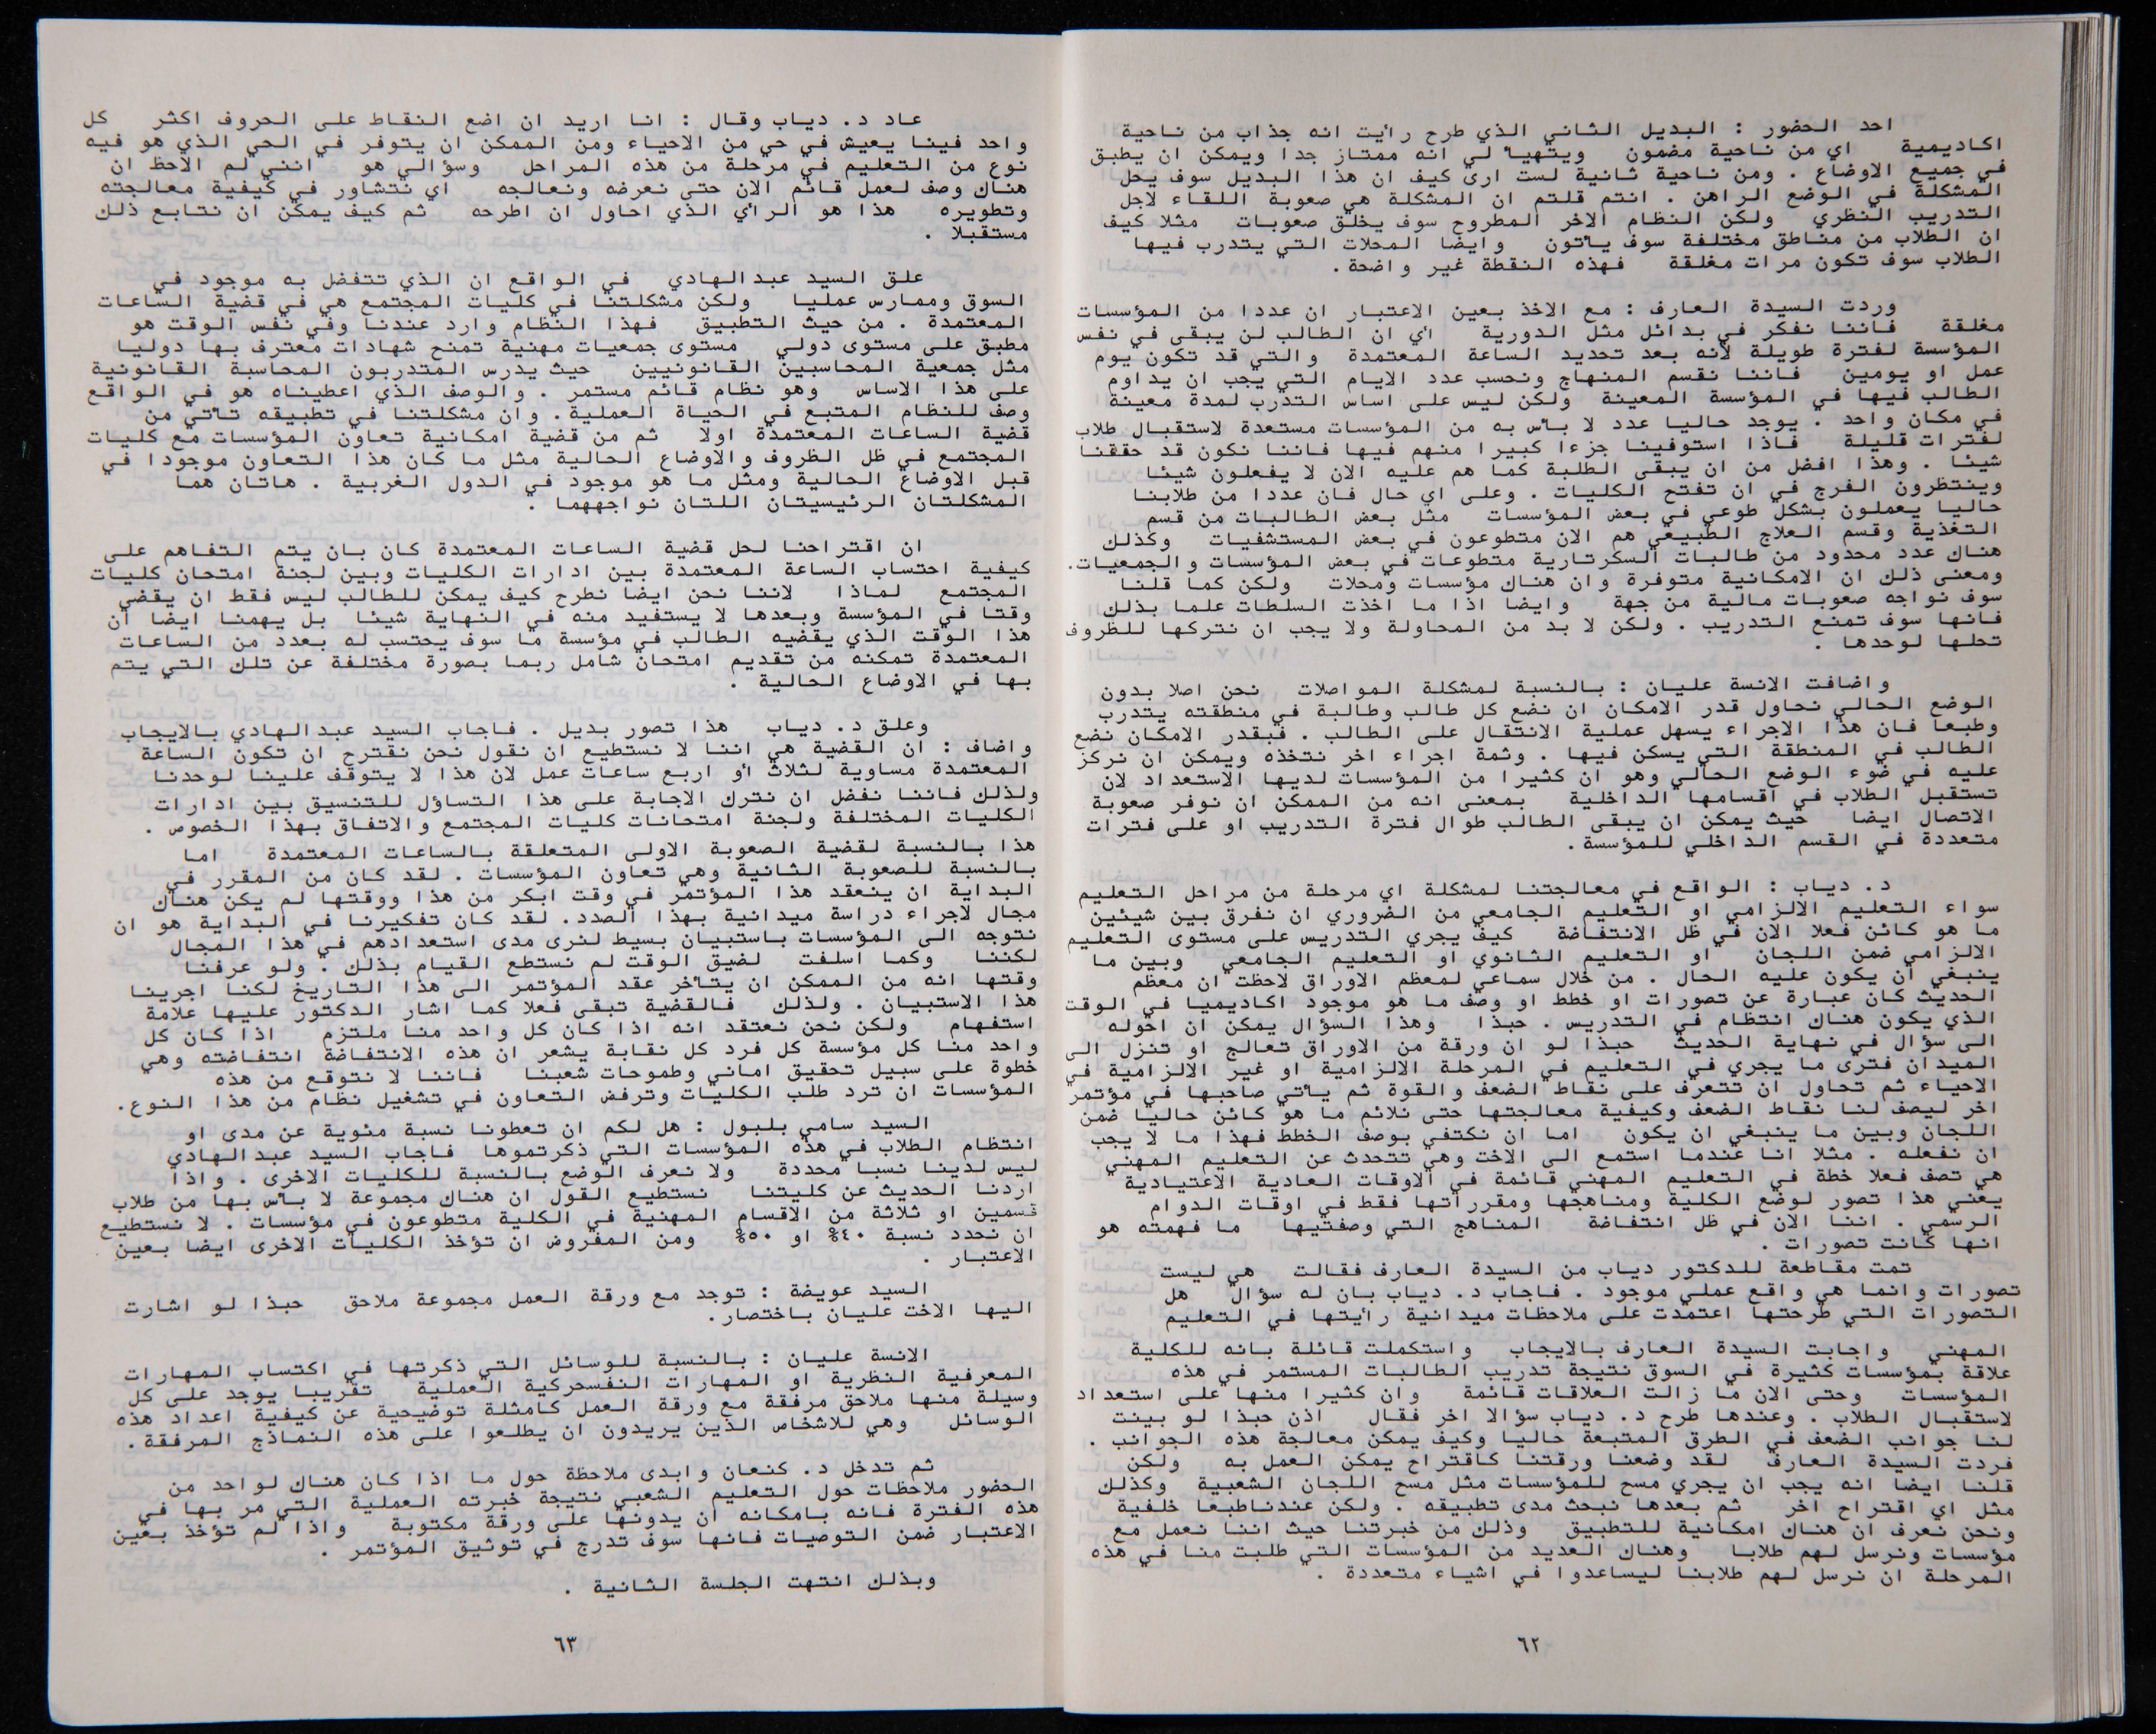 احد الحضور : البديل الثاني الذي طرح رأيت انه جذاب من ناحية
اكاديمية اي من ناحية مضمون ويتهيأ لي انه ممتاز جدا ويمكن ان يطبق
في جميع الاوضاع . ومن ناحية ثانية لست ارى كيف ان هذا البديل سوف يحل
المشكلة في الوضع الراهن . انتم قلتم ان المشكلة هي صعوبة اللقاء لاجل
التدريب النظري ولكن النظام الاخر المطروح سوف يخلق صعوبات مثلا كيف
ان الطلاب من مناطق مختلفة سوف يأتون وايضا المحلات التي يتدرب فيها
الطلاب سوف تكون مرات مغلقة فهذه النقطة غير واضحة .
وردت السيدة العارف : مع الاخذ بعين الاعتبار ان عددا من المؤسسات
مغلقة فاننا نفكر في بدائل مثل الدورية أي ان الطالب لن يبقى في نفس
المؤسسة لفترة طويلة لأنه بعد تحديد الساعة المعتمدة والتي قد تكون يوم
عمل او يومين فاننا نقسم المنهاج ونحسب عدد الايام التي يجب ان يداوم
الطالب فيها في المؤسسة المعينة ولكن ليس على اساس التدرب لمدة معينة
في مكان واحد . يوجد حاليا عدد لا بأس به من المؤسسات مستعدة لاستقبال طلاب
لفترات قليلة فاذا استوفينا جزءا كبيرا منهم فيها فاننا نكون قد حققنا
شيئا . وهذا افضل من ان يبقى الطلبة كما هم عليه الان لا يفعلون شيئا
وينتظرون الفرج في ان تفتح الكليات . وعلى اي حال فان عددا من طلابنا
حاليا يعملون بشكل طوعي في بعض المؤسسات مثل بعض الطالبات من قسم
التغذية وقسم العلاج الطبيعي هم الان متطوعون في بعض المستشفيات وكذلك
هناك عدد محدود من طالبات السكرتارية متطوعات في بعض المؤسسات والجمعيات.
ومعنى ذلك ان الامكانية متوفرة وان هناك مؤسسات ومحلات ولكن كما قلنا
سوف نواجه صعوبات مالية من جهة وايضا اذا ما اخذت السلطات علما بذلك
فانها سوف تمنع التدريب . ولكن لا بد من المحاولة ولا يجب ان نتركها للظروف
تحلها لوحدها .
واضافت الانسة عليان : بالنسبة لمشكلة المواصلات نحن اصلا بدون
الوضع الحالي نحاول قدر الامكان ان نضع كل طالب وطالبة في منطقته يتدرب
وطبعا فان هذا الاجراء يسهل عملية الانتقال على الطالب . فبقدر الامكان نضع
الطالب في المنطقة التي يسكن فيها . وثمة اجراء اخر نتخذه ويمكن ان نركز
عليه في ضوء الوضع الحالي وهو ان كثيرا من المؤسسات لديها الاستعداد لان
تستقبل الطلاب في اقسامها الداخلية بمعنى انه من الممكن ان نوفر صعوبة
الاتصال ايضا حيث يمكن ان يبقى الطالب طوال فترة التدريب او على فترات
متعددة في القسم الداخلي للمؤسسة .
د. دياب : الواقع في معالجتنا لمشكلة اي مرحلة من مراحل التعليم
سواء التعليم الالزامي او التعليم الجامعي من الضروري ان نفرق بين شيئين
ما هو كائن فعلا الان في ظل الانتفاضة كيف يجري التدريس على مستوى التعليم
الالزامي ضمن اللجان او التعليم الثانوي او التعليم الجامعي وبين ما
ينبغي أن يكون عليه الحال . من خلال سماعي لمعظم الاوراق لاحظت ان معظم
الحديث كان عبارة عن تصورات او خطط او وصف ما هو موجود اكاديميا في الوقت
الذي يكون هناك انتظام في التدريس . حبذا وهذا السؤال يمكن ان احوله
الى سؤال في نهاية الحديث حبذا لو ان ورقة من الاوراق تعالج او تنزل الى
الميدان فترى ما يجري في التعليم في المرحلة الالزامية او غير الالزامية في
الاحياء ثم تحاول ان تتعرف على نقاط الضعف والقوة ثم يأتي صاحبها في مؤتمر
اخر ليصف لنا نقاط الضعف وكيفية معالجتها حتى نلائم ما هو كائن حاليا ضمن
اللجان وبين ما ينبغي ان يكون اما ان نكتفي بوصف الخطط فهذا ما لا يجب
ان نفعله . مثلا انا عندما استمع الى الاخت وهي تتحدث عن التعليم المهني
هي تصف فعلا خطة في التعليم المهني قائمة في الاوقات العادية الاعتيادية
يعني هذا تصور لوضع الكلية ومناهجها ومقرراتها فقط في اوقات الدوام
الرسمي . اننا الان في ظل انتفاضة المناهج التي وصفتيها ما فهمته هو
انها كانت تصورات .
تمت مقاطعة للدكتور دياب من السيدة العارف فقالت هي ليست
تصورات وانما هي واقع عملي موجود . فاجاب د. دياب بان له سؤال هل
التصورات التي طرحتها اعتمدت على ملاحظات ميدانية رأيتها في التعليم
المهني واجابت السيدة العارف بالايجاب واستكملت قائلة بانه للكلية
علاقة بمؤسسات كثيرة في السوق نتيجة تدريب الطالبات المستمر في هذه
المؤسسات وحتى الان ما زالت العلاقات قائمة وان كثيرا منها على استعداد
لاستقبال الطلاب . وعندها طرح د. دياب سؤالا اخر فقال اذن حبذا لو بينت
لنا جوانب الضعف في الطرق المتبعة حاليا وكيف يمكن معالجة هذه الجوانب .
فردت السيدة العارف لقد وضعنا ورقتنا كاقتراح يمكن العمل به ولكن
قلنا ايضا انه يجب ان يجري مسح للمؤسسات مثل مسح اللجان الشعبية وكذلك
مثل اي اقتراح اخر ثم بعدها نبحث مدى تطبيقه . ولكن عندناطبعا خلفية
ونحن نعرف ان هناك امكانية للتطبيق وذلك من خبرتنا حيث اننا نعمل مع
مؤسسات ونرسل لهم طلابا وهناك العديد من المؤسسات التي طلبت منا في هذه
المرحلة ان نرسل لهم طلابنا ليساعدوا في اشياء متعددة .
٦٢
عاد د. دياب وقال : انا اريد ان اضع النقاط على الحروف اكثر كل
واحد فينا يعيش في حي من الاحياء ومن الممكن ان يتوفر في الحي الذي هو فيه
نوع من التعليم في مرحلة من هذه المراحل وسؤالي هو انني لم الاحظ ان
هناك وصف لعمل قائم الان حتى نعرضه ونعالجه اي نتشاور في كيفية معالجته
وتطويره هذا هو الرأي الذي احاول ان اطرحه ثم كيف يمكن ان نتابع ذلك
مستقبلا .
علق السيد عبدالهادي في الواقع ان الذي تتفضل به موجود في
السوق وممارس عمليا ولكن مشكلتنا في كليات المجتمع هي في قضية الساعات
المعتمدة . من حيث التطبيق فهذا النظام وارد عندنا وفي نفس الوقت هو
مطبق على مستوى دولي مستوى جمعيات مهنية تمنح شهادات معترف بها دوليا
مثل جمعية المحاسبين القانونيين حيث يدرس المتدربون المحاسبة القانونية
على هذا الاساس وهو نظام قائم مستمر . والوصف الذي اعطيناه هو في الواقع
وصف للنظام المتبع في الحياة العملية . وان مشكلتنا في تطبيقه تأتي من
قضية الساعات المعتمدة اولا ثم من قضية امكانية تعاون المؤسسات مع كليات
المجتمع في ظل الظروف والاوضاع الحالية مثل ما كان هذا التعاون موجودا في
قبل الاوضاع الحالية ومثل ما هو موجود في الدول الغربية . هاتان هما
المشكلتان الرئيسيتان اللتان نواجههما .
ان اقتراحنا لحل قضية الساعات المعتمدة كان بان يتم التفاهم على
كيفية احتساب الساعة المعتمدة بين ادارات الكليات وبين لجنة امتحان كليات
المجتمع لماذا لاننا نحن ايضا نطرح كيف يمكن للطالب ليس فقط ان يقضي
وقتا في المؤسسة وبعدها لا يستفيد منه في النهاية شيئا بل يهمنا ايضا أن
هذا الوقت الذي يقضيه الطالب في مؤسسة ما سوف يحتسب له بعدد من الساعات
المعتمدة تمكنه من تقديم امتحان شامل ربما بصورة مختلفة عن تلك التي يتم
بها في الاوضاع الحالية .
وعلق د. دياب هذا تصور بديل . فاجاب السيد عبدالهادي بالايجاب
واضاف : ان القضية هي اننا لا نستطيع ان نقول نحن نقترح ان تكون الساعة
المعتمدة مساوية لثلاث أو اربع ساعات عمل لان هذا لا يتوقف علينا لوحدنا
ولذلك فاننا نفضل ان نترك الاجابة على هذا التساؤل للتنسيق بين ادارات
الكليات المختلفة ولجنة امتحانات كليات المجتمع والاتفاق بهذا الخصوص .
هذا بالنسبة لقضية الصعوبة الاولى المتعلقة بالساعات المعتمدة اما
بالنسبة للصعوبة الثانية وهي تعاون المؤسسات . لقد كان من المقرر في
البداية ان ينعقد هذا المؤتمر في وقت ابكر من هذا ووقتها لم يكن هناك
مجال لاجراء دراسة ميدانية بهذا الصدد. لقد كان تفكيرنا في البداية هو ان
نتوجه الى المؤسسات باستبيان بسيط لنرى مدى استعدادهم في هذا المجال
لكننا وكما اسلفت لضيق الوقت لم نستطع القيام بذلك . ولو عرفنا
وقتها انه من الممكن ان يتأخر عقد المؤتمر الى هذا التاريخ لكنا اجرينا
هذا الاستبيان . ولذلك فالقضية تبقى فعلا كما اشار الدكتور عليها علامة
استفهام ولكن نحن نعتقد انه اذا كان كل واحد منا ملتزم اذا كان كل
واحد منا كل مؤسسة كل فرد كل نقابة يشعر ان هذه الانتفاضة انتفاضته وهي
خطوة على سبيل تحقيق اماني وطموحات شعبنا فاننا لا نتوقع من هذه
المؤسسات ان ترد طلب الكليات وترفض التعاون في تشغيل نظام من هذا النوع.
السيد سامي بلبول : هل لكم ان تعطونا نسبة مئوية عن مدى او
انتظام الطلاب في هذه المؤسسات التي ذكرتموها فاجاب السيد عبدالهادي
ليس لدينا نسبا محددة ولا نعرف الوضع بالنسبة للكليات الاخرى . واذا
اردنا الحديث عن كليتنا نستطيع القول ان هناك مجموعة لا بأس بها من طلاب
قسمين او ثلاثة من الاقسام المهنية في الكلية متطوعون في مؤسسات . لا نستطيع
ان نحدد نسبة ٤٠% او ٥٠% ومن المفروض ان تؤخذ الكليات الاخرى ايضا بعين
الاعتبار .
السيد عويضة : توجد مع ورقة العمل مجموعة ملاحق حبذا لو اشارت
اليها الاخت عليان باختصار.
الانسة عليان : بالنسبة للوسائل التي ذكرتها في اكتساب المهارات
المعرفية النظرية او المهارات النفسحركية العملية تقريبا يوجد على كل
وسيلة منها ملاحق مرفقة مع ورقة العمل كامثلة توضيحية عن كيفية اعداد هذه
الوسائل وهي للاشخاص الذين يريدون ان يطلعوا على هذه النماذج المرفقة .
ثم تدخل د. كنعان وابدى ملاحظة حول ما اذا كان هناك لواحد من
الحضور ملاحظات حول التعليم الشعبي نتيجة خبرته العملية التي مر بها في
هذه الفترة فانه بامكانه ان يدونها على ورقة مكتوبة واذا لم تؤخذ بعين
الاعتبار ضمن التوصيات فانها سوف تدرج في توثيق المؤتمر .
وبذلك انتهت الجلسة الثانية .
٦٣